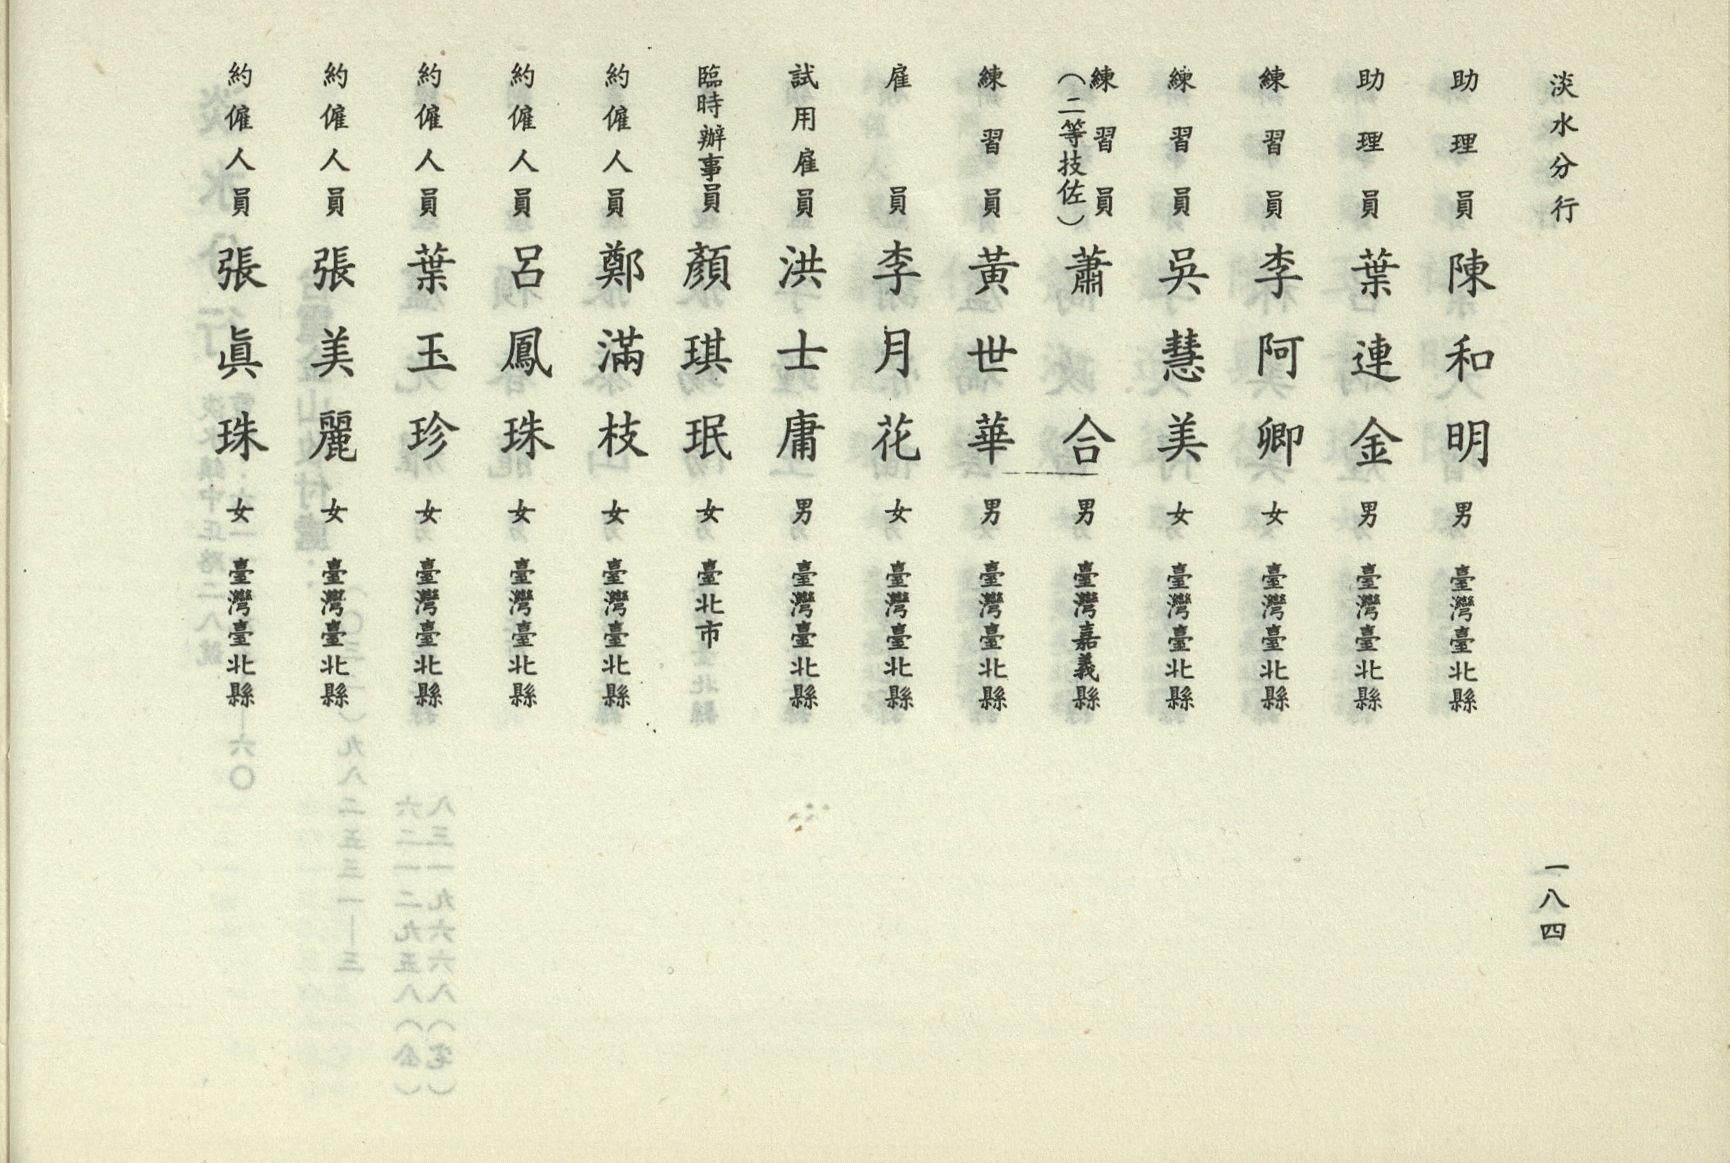 淡水分行
一八四
助理員 陳和明 男 臺灣臺北縣
助理員 葉連金 男 臺灣臺北縣
練習員 李阿卿 女 臺灣臺北縣
練習員 吳慧美 女 臺灣臺北縣
練習員（二等技佐） 蕭合 男 臺灣嘉義縣
練習員 黃世華 男 臺灣臺北縣
雇員 李月花 女 臺灣臺北縣
試用雇員 洪士庸 男 臺灣臺北縣
臨時辦事員 顏琪珉 女 臺北市
約僱人員 鄭滿枝 女 臺灣臺北縣
約僱人員 呂鳳珠 女 臺灣臺北縣
約僱人員 葉玉珍 女 臺灣臺北縣
約僱人員 張美麗 女 臺灣臺北縣
約僱人員 張眞珠 女 臺灣臺北縣